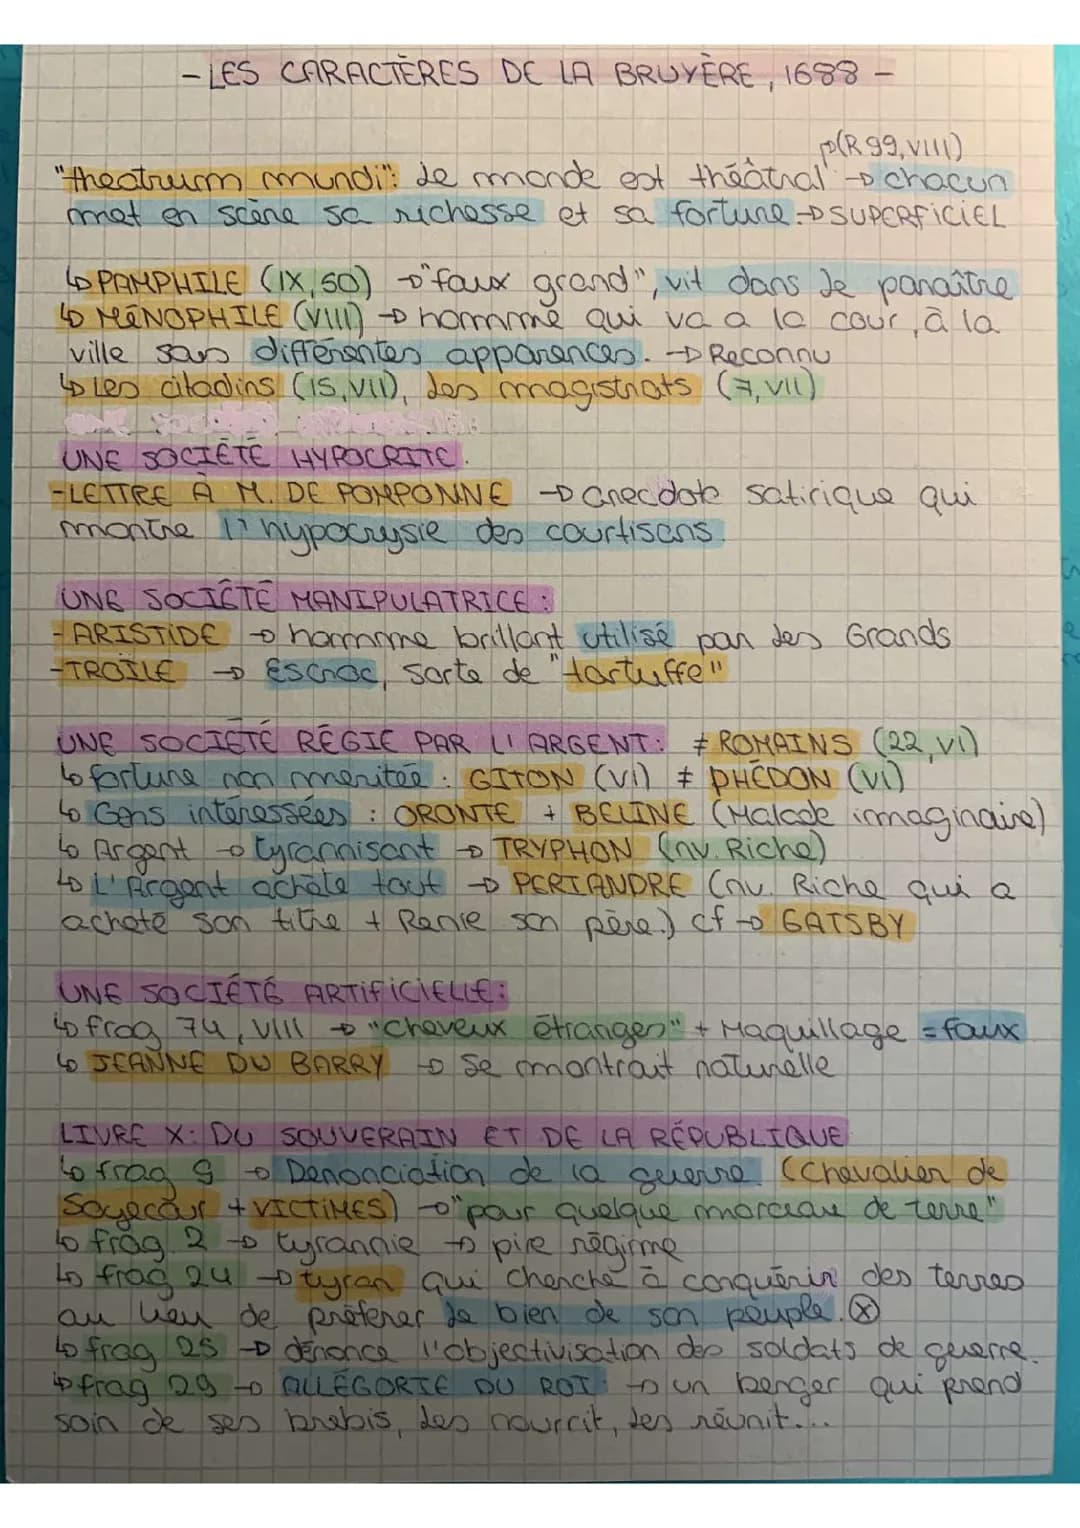 - LES CARACTÈRES DE LA BRUYÈRE, 1688 -
(R99, VIII)
"theatrum mundi": le monde est théâtral → chacun
met en scène sa richesse et sa fortune → SUPERFICIEL
↳ PAMPHILE (IX, 50) → "faux grand", vit dans le paraître
↳ MÉNOPHILE (VIII) → homme qui va à la cour, à la
ville sous différentes apparences. → Reconnu
↳ Les citadins (15, VII), les magistrats (7, VII)
UNE SOCIÉTÉ HYPOCRITE.
- LETTRE À M. DE POMPONNE → anecdote satirique qui
montre l'hypocrysie des courtisans.
UNE SOCIÉTÉ MANIPULATRICE :
- ARISTIDE → homme brillant utilisé par les Grands
- TROÏLE → Escroc, sorte de "tartuffe"
UNE SOCIÉTÉ RÉGIE PAR L'ARGENT: ≠ ROMAINS (22, VI)
↳ fortune non méritée : GITON (VI) ≠ PHÉDON (VI)
↳ Gens intéressées : ORONTE + BELINE (Malade imaginaire)
↳ Argent → tyrannisant → TRYPHON (nv. Riche)
↳ L'Argent achète tout → PERIANDRE (nv. Riche qui a
acheté son titre + Renie son père.) cf → GATSBY
UNE SOCIÉTÉ ARTIFICIELLE:
↳ frag 74, VIII → "cheveux étranges" + Maquillage = faux
↳ JEANNE DU BARRY → se montrait naturelle
LIVRE X: DU SOUVERAIN ET DE LA RÉPUBLIQUE
↳ frag 9 → Dénonciation de la guerre. (Chevalier de
Soyecour + VICTIMES) → "pour quelque morceau de terre"
↳ frag. 2 → tyrannie → pire régime
↳ frag 24 → tyran qui cherche à conquérir des terres
au lieu de préférer le bien de son peuple. ⊗
↳ frag 25 → dénonce l'objectivisation des soldats de guerre.
↳ frag 29 → ALLÉGORIE DU ROI: → un berger qui prend
soin de ses brebis, les nourrit, les réunit...